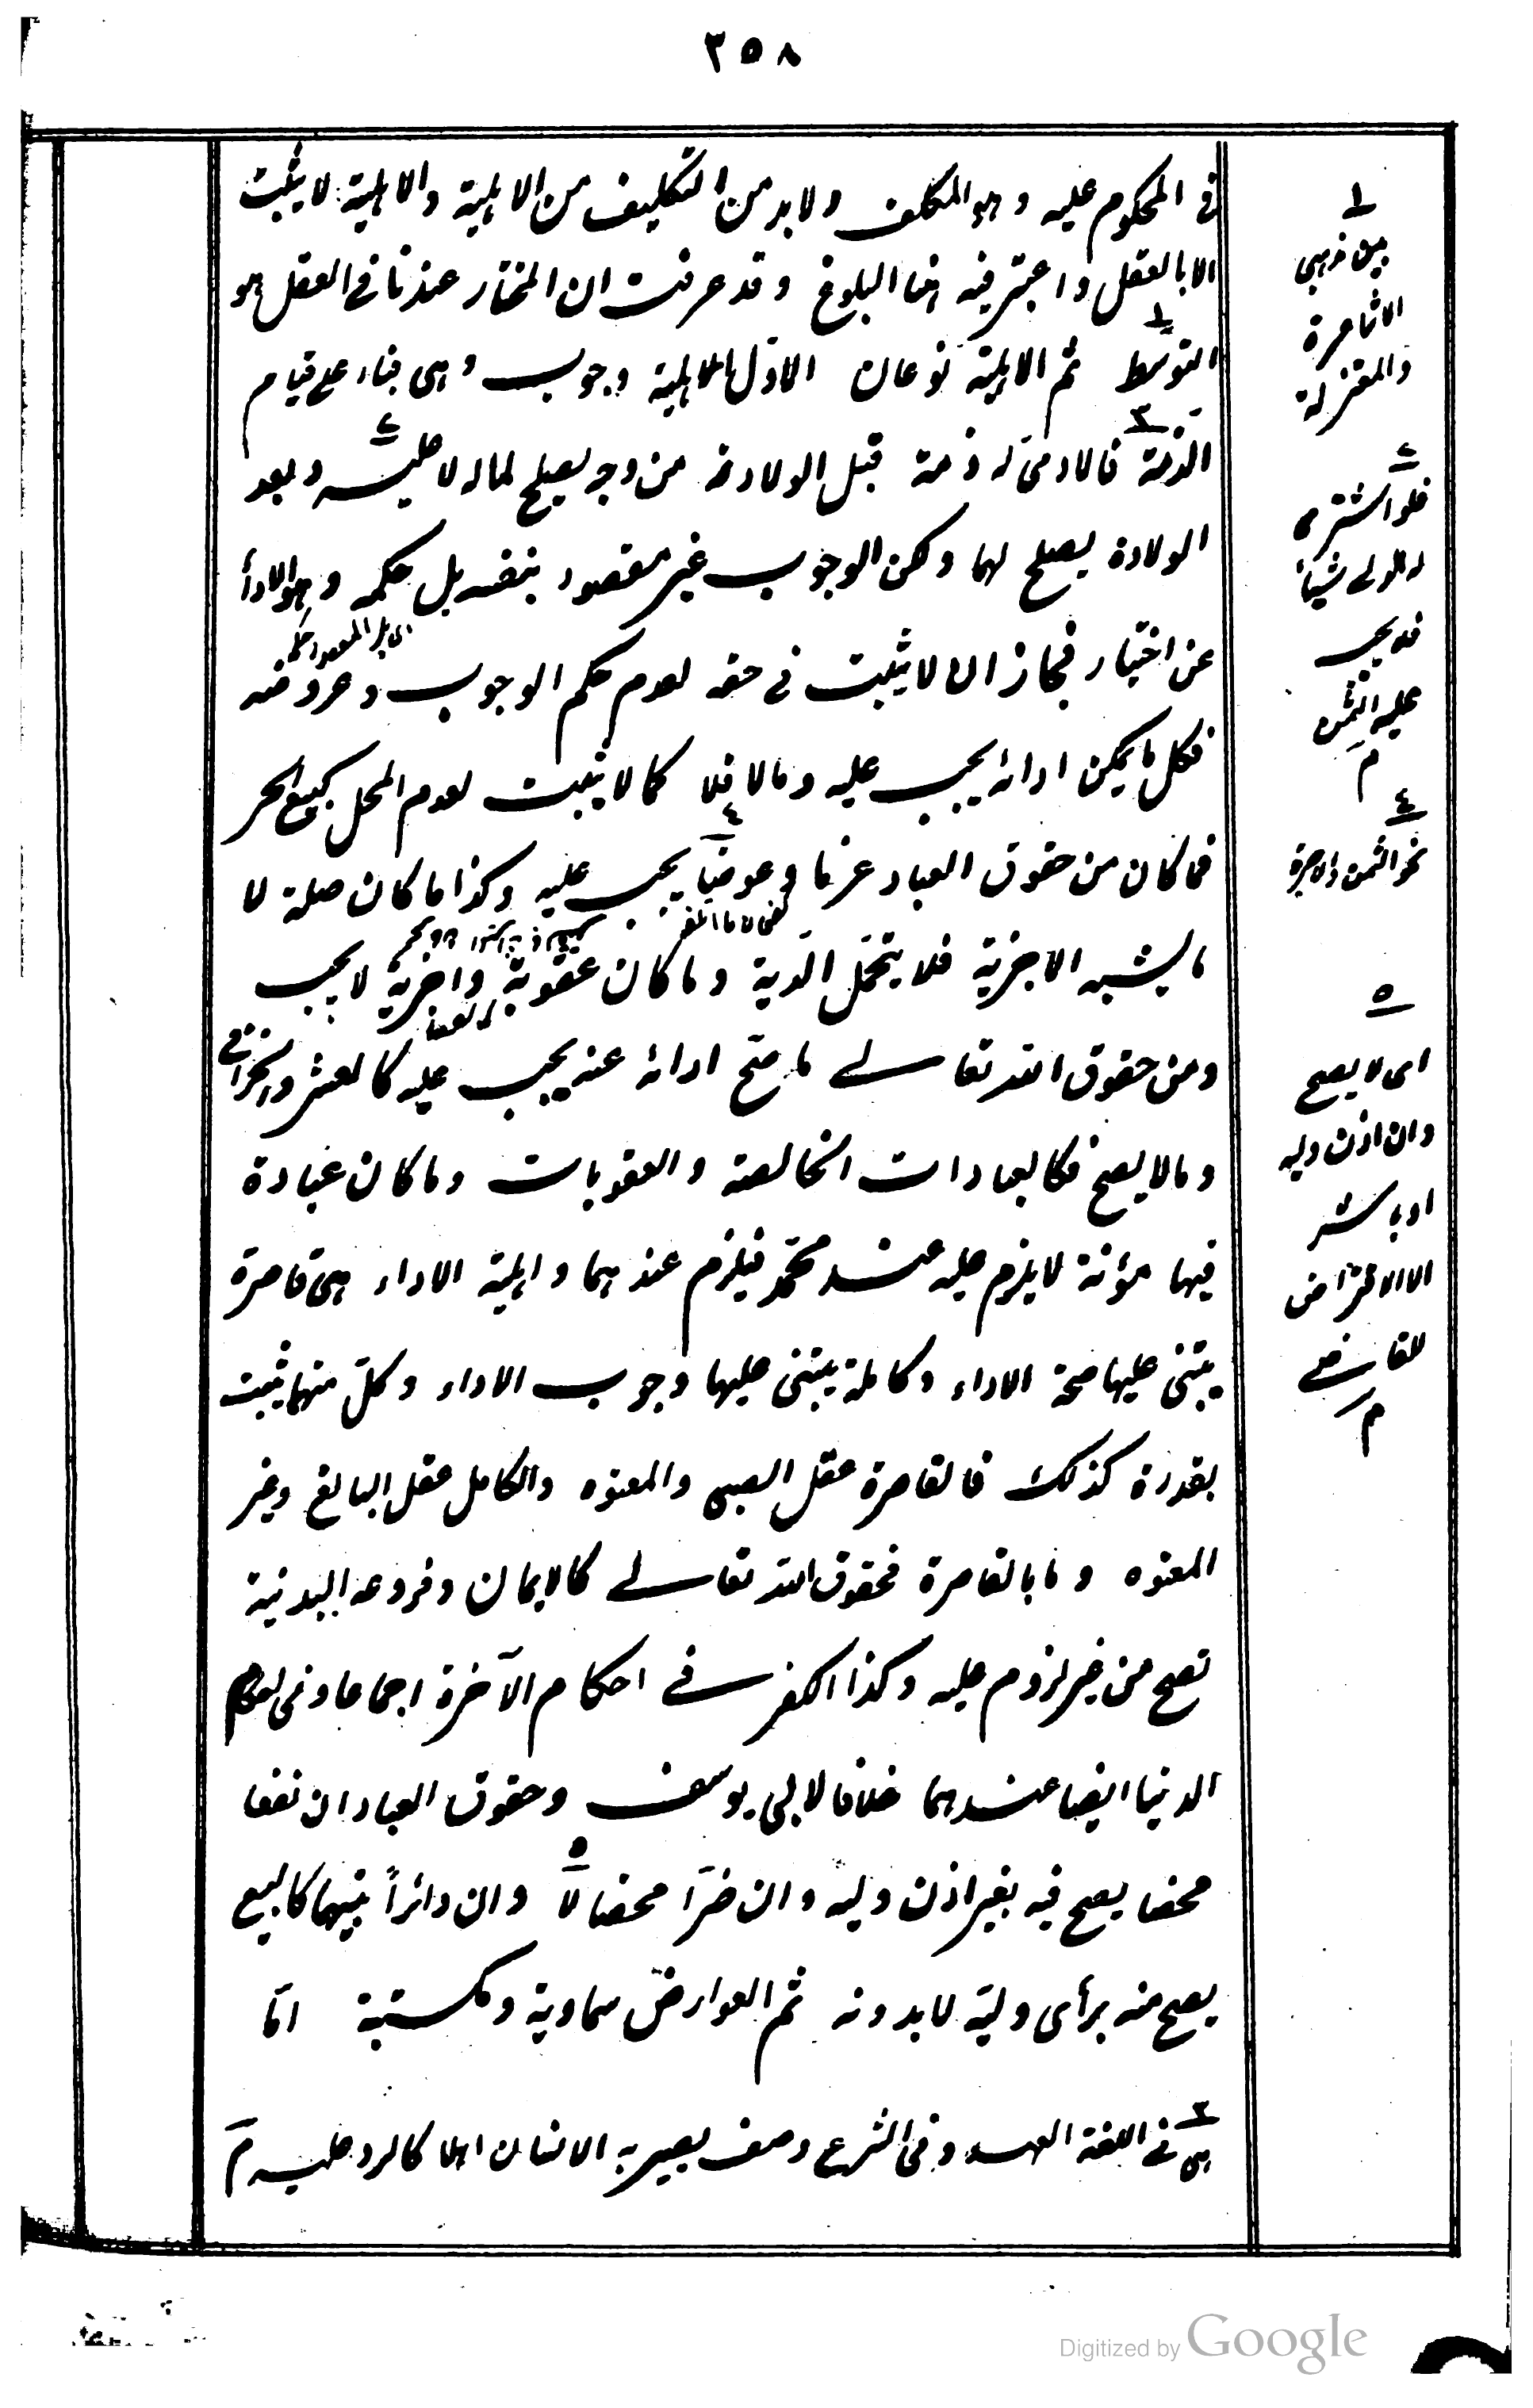 ٣٥٨
فى المحكوم عليه وهو المكلف ولابد من التكليف من الاهلية والاهلية لا يثبت
الا بالعقل واعتبر فيه ايضا البلوغ وقد عرفت ان المختار عندنا فى العقل هو
التوسّط ثم الاهلية نوعان الاوّل اهلية وجوب وهى بناء على قيام
الذمّة فالادمى له ذمة قبل الولادة من وجه يصلح لماله لا عليه وبعد
الولادة يصلح لهما ولكن الوجوب غير مقصود بنفسه بل حكمه وهو الاداء
عن اختيار فجاز ان لا يثبت فى حقه لعدم حكم الوجوب وغرضه
فكل ما يمكن ادائه يجب عليه ومالا فلا كما لا يثبت لعدم المحل كبيع الحر
فما كان من حقوق العباد غرما وعوضا يجب عليه وكذا ما كان صلة لا
ما يشبه الاجزية فلا يتحمّل الدية وما كان عقوبة واجزية لا يجب
ومن حقوق الله تعالى ما صحّ ادائه عنه يجب عليه كالعشر والخراج
ومالا يصح فكالعبادات الخالصة والعقوبات وما كان عبادة
فيها مؤنة لا يلزم عليه عند محمّد فيلزم عندهما واهلية الاداء هى قاصرة
يبتنى عليها صحة الاداء وكاملة يبتنى عليها وجوب الاداء وكلّ منهما يثبت
بقدرة كذلك فالقاصرة عقل الصبى والمعتوه والكامل عقل البالغ وغير
المعتوه وما بالقاصرة فحقوق الله تعالى كالايمان وفروعه البدنية
تصح من غير لزوم عليه وكذا الكفر فى احكام الآخرة اجماعا وفى احكام
الدنيا ايضا عندهما خلافا لابى يوسف وحقوق العباد ان نفعا
محضا يصح فيه بغير اذن وليه وان ضرّا محضا لا وان دائراً بينهما كالبيع
يصح منه برأى وليّه لا بدونه ثم العوارض سماوية ومكتسبة امّا
٣
هى فى اللغة العهد وفى الشرع وصف يصير به الانسان اهلا كالرد عليه م
١
بين مذهبى
الاشاعرة
والمعتزلة
٢
فلو اشترى
له الولى شيئا
فلا يجب
عليه الثمن
م
٤
نحو الثمن والاجرة
٥
اى لا يصح
وان اذن وليه
او باشر
الا الاقتراض
للقاضى
م
Digitized by Google